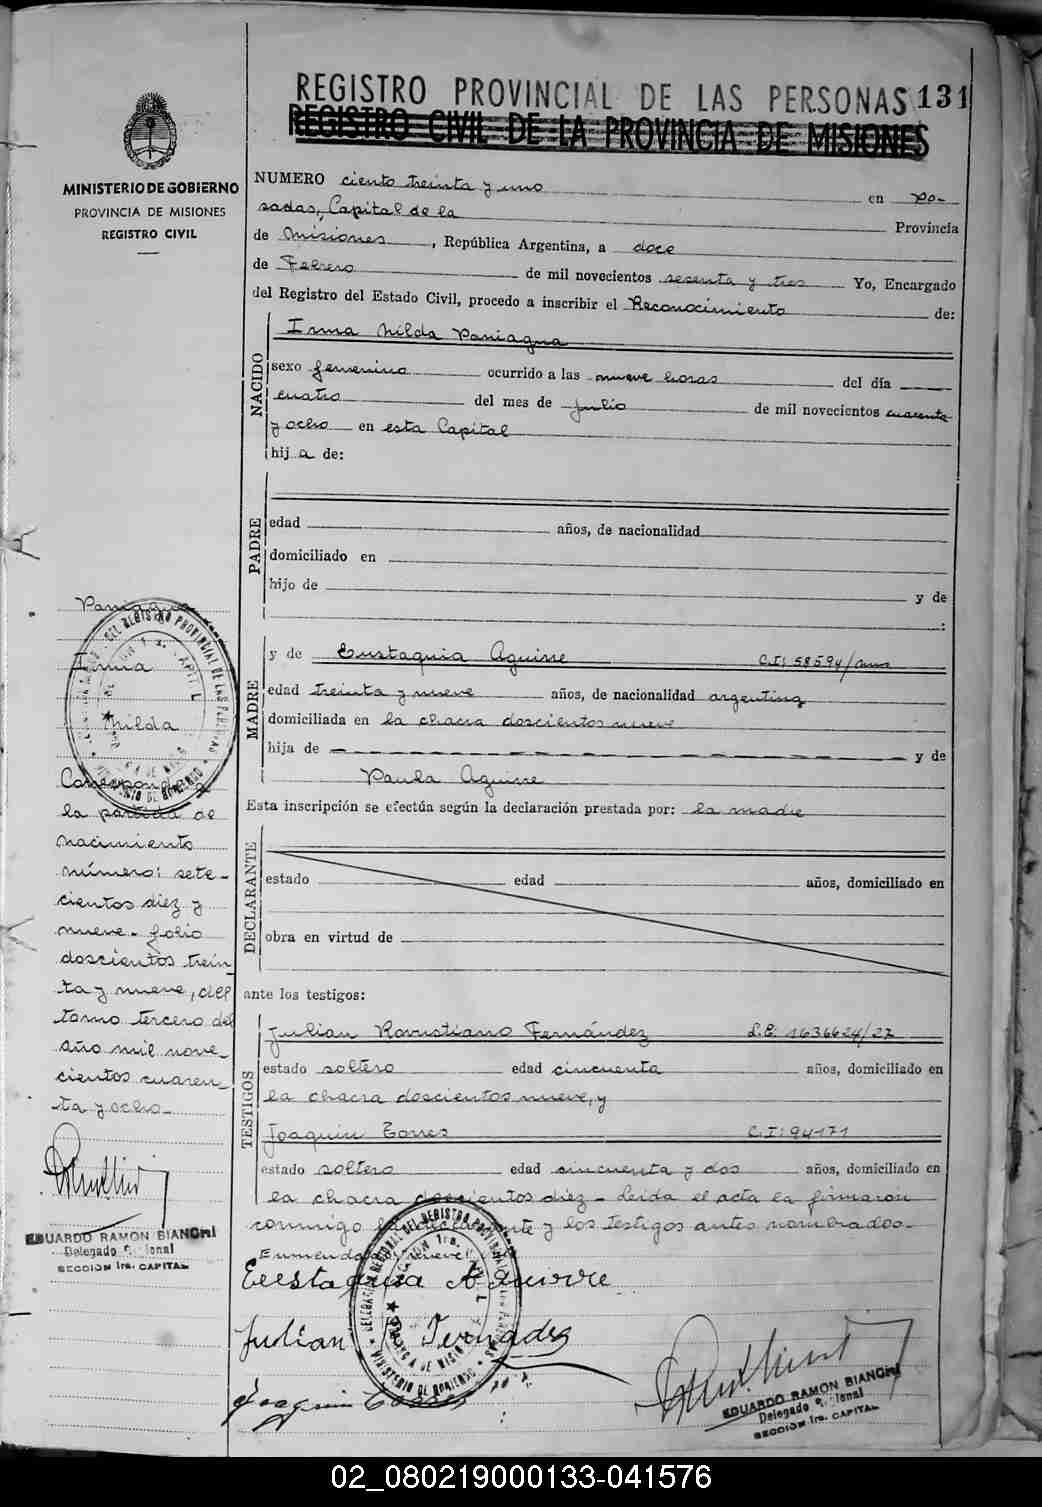 REGISTRO PROVINCIAL DE LAS PERSONAS 131
REGISTRO CIVIL DE LA PROVINCIA DE MISIONES
MINISTERIO DE GOBIERNO
PROVINCIA DE MISIONES
REGISTRO CIVIL
NUMERO ciento treinta y uno en Po-
sadas, Capital de la Provincia
de Misiones, República Argentina, a doce
de Febrero de mil novecientos sesenta y tres Yo, Encargado
del Registro del Estado Civil, procedo a inscribir el Reconocimiento de:
NACIDO
Irma Nilda Paniagua
sexo femenino ocurrido a las nueve horas del día
cuatro del mes de julio de mil novecientos cuarenta
y ocho en esta Capital
hij a de:
PADRE
edad años, de nacionalidad
domiciliado en
hijo de y de
:
MADRE
y de Eustaquia Aguirre C.I: 58594/
edad treinta y nueve años, de nacionalidad argentina
domiciliada en la chacra doscientos nueve
hija de y de
Paula Aguirre
Esta inscripción se efectúa según la declaración prestada por: la madre
DECLARANTE
estado edad años, domiciliado en
obra en virtud de
ante los testigos:
TESTIGOS
Julian Robustiano Fernández L.E: 1636624/27
estado soltero edad cincuenta años, domiciliado en
la chacra doscientos nueve, y
Joaquin Torres C.I: 94171
estado soltero edad cincuenta y dos años, domiciliado en
la chacra doscientos diez - leida el acta la firmaron
conmigo la y los testigos antes nombrados.-
Eustaquia Aguirre
Julian Fernadez
Joaquin
Paniagua
Irma
Nilda
Corresponde a
la partida de
nacimiento
número: sete-
cientos diez y
nueve - folio
doscientos trein
ta y nueve, del
tomo tercero del
año mil nove-
cientos cuaren-
ta y ocho -
EDUARDO RAMON BIANCHI
Delegado
SECCIÓN 1ra. CAPITAL
EDUARDO RAMON BIANCHI
Delegado
SECCIÓN 1ra. CAPITAL
02_080219000133-041576